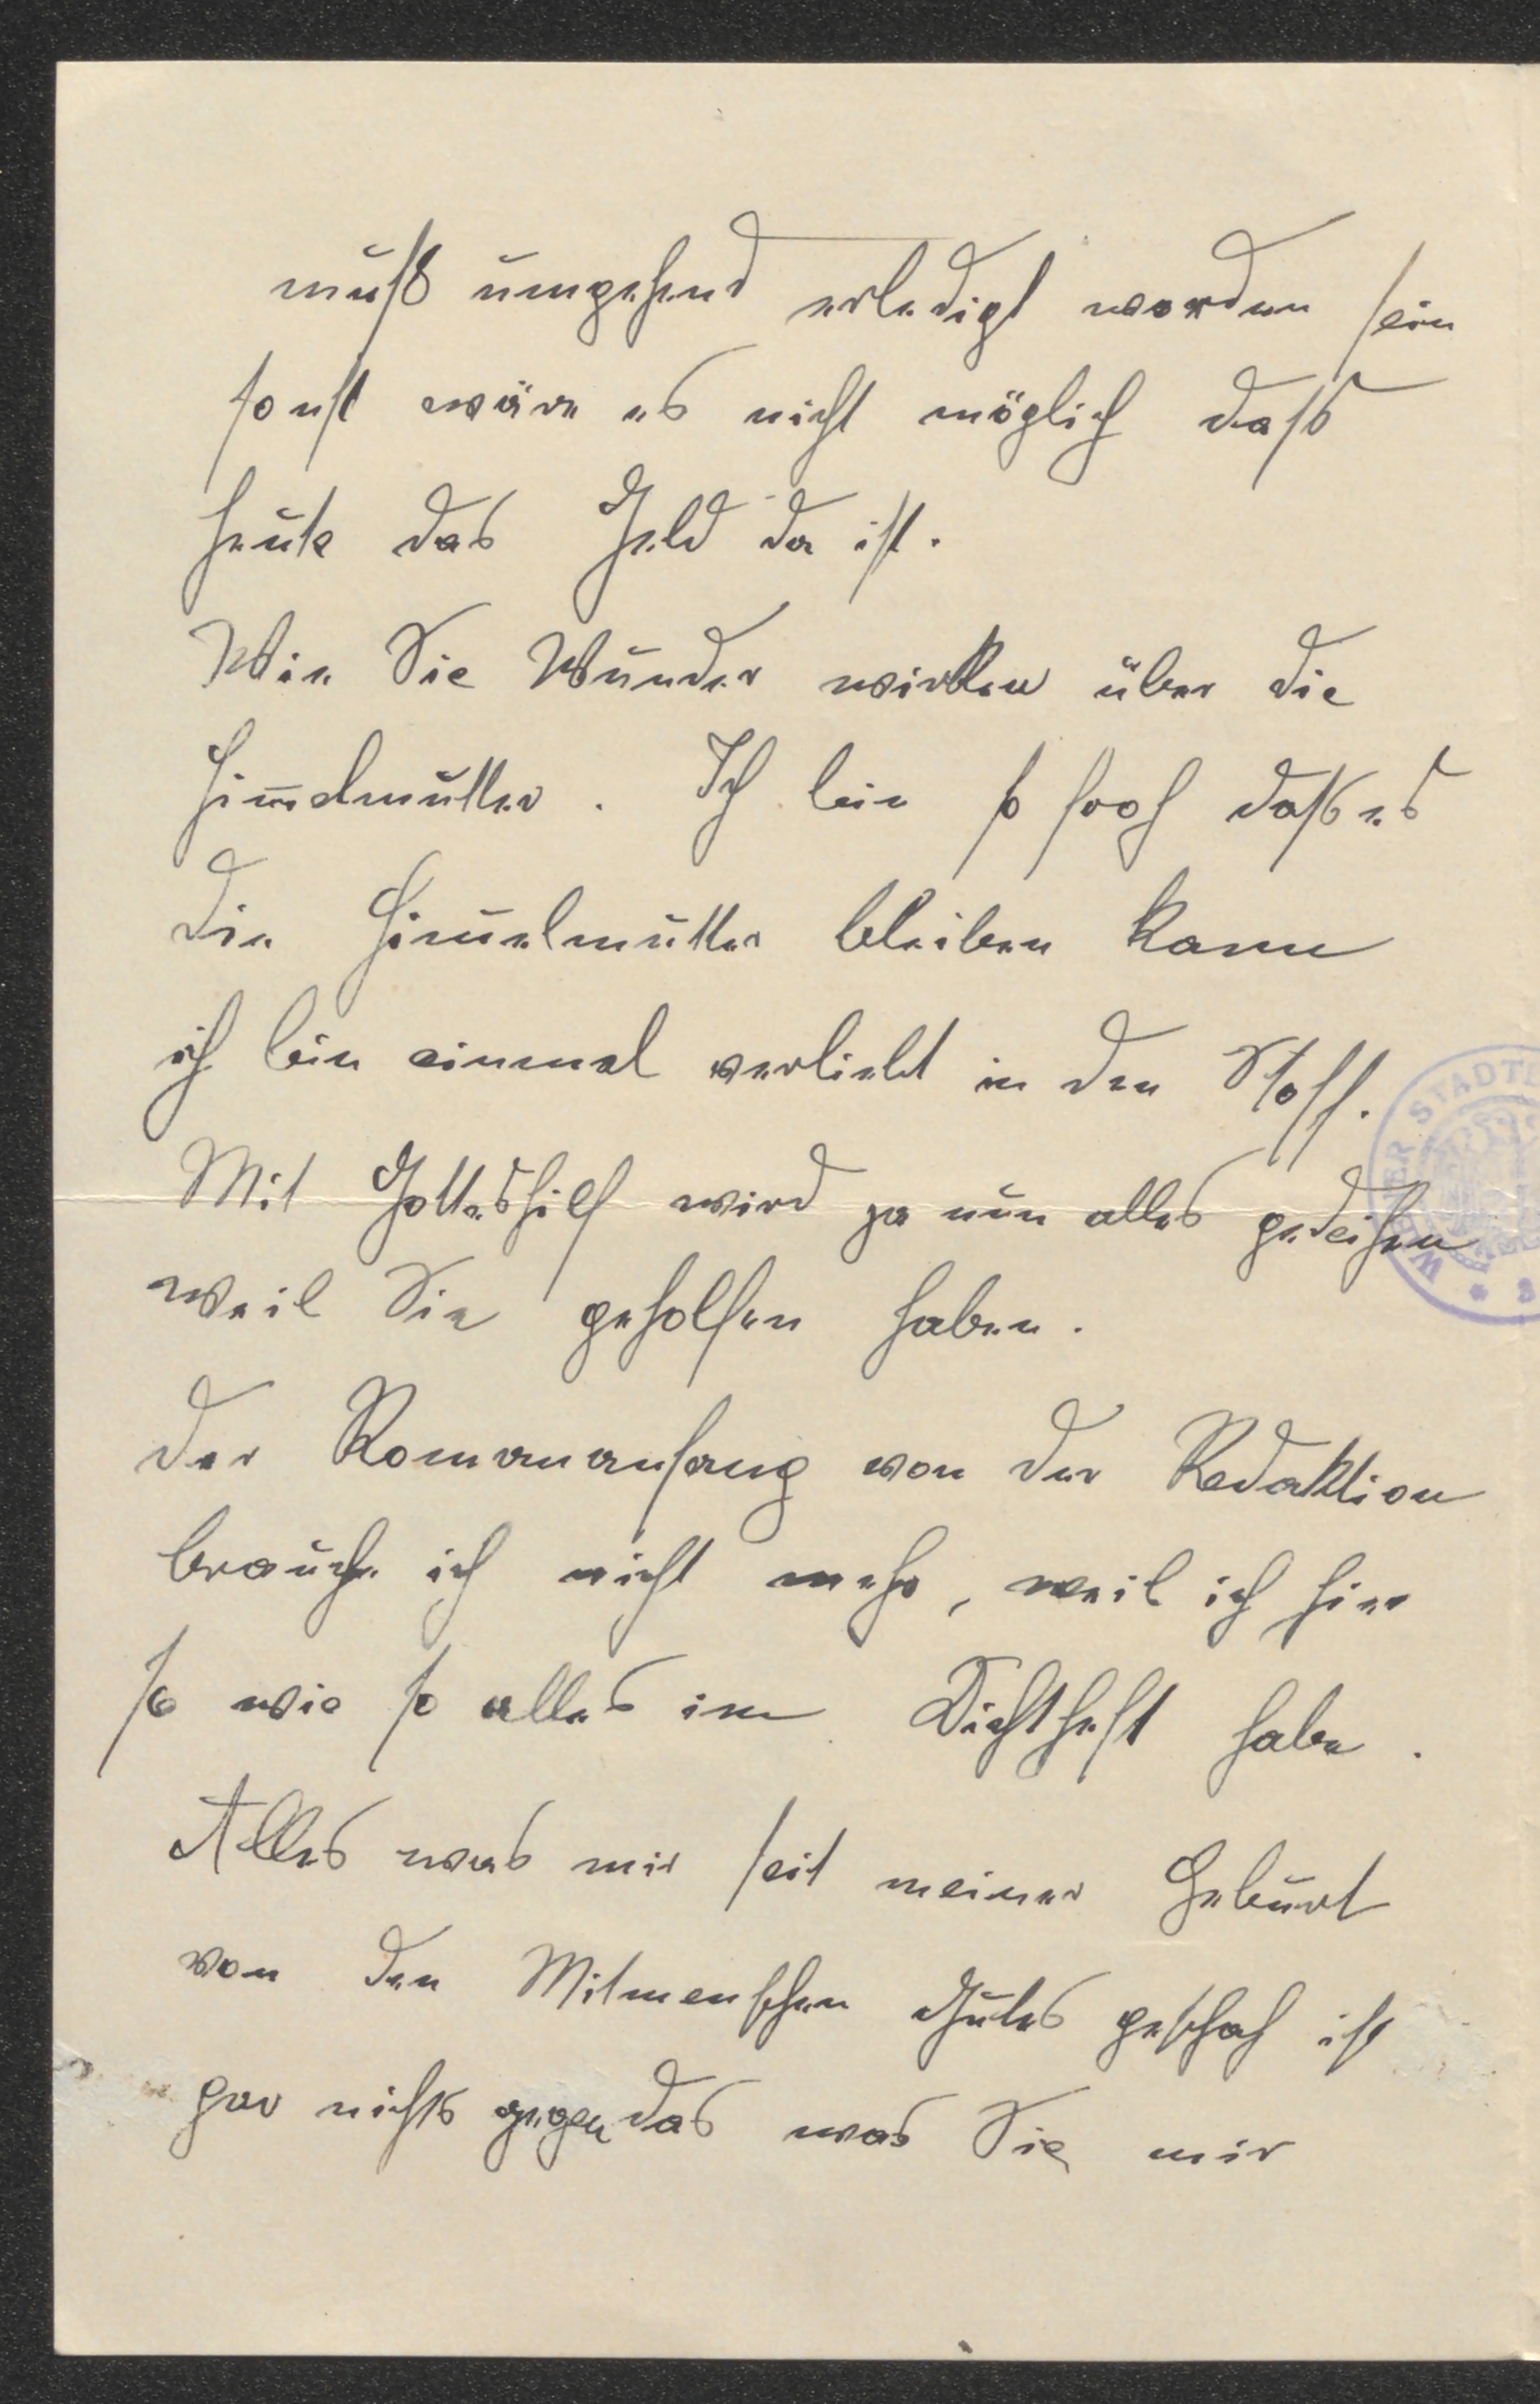 muß umgehend erledigt worden sein
sonst wäre es nicht möglich daß
heute das Geld da ist.
Wie Sie Wunder wirken über die
Him̅elmutter. Ich bin so froh daß es
die Himelmutter bleiben kann
ich bin einmal verliebt in den Stoff.
Mit Gotteshilf wird ja nun alles gedeihen
weil Sie geholfen haben.
Der Romananfang von der Redaktion
brauche ich nicht mehr, weil ich hier
so wie so alles im Dichtheft habe.
Alles was mir seit meiner Geburt
von den Mitmenschen Gutes geschah ist
gar nichts gegen das was Sie mir
WIENER STADT